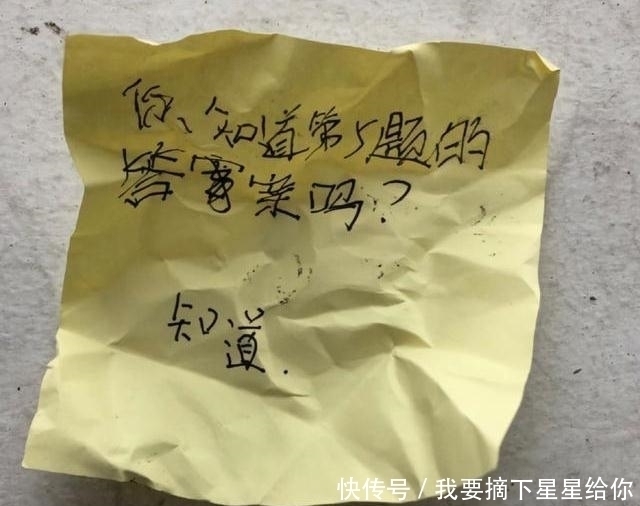 你、知道第5题的
答案吗?
知道.
快传号 / 我要摘下星星给你